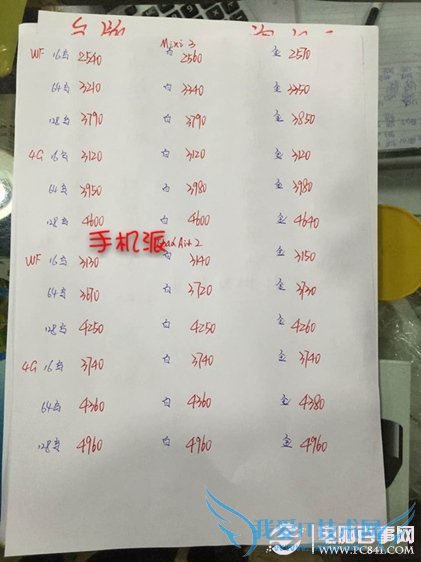 Mini 3
WF 16 2540 白 2560 金 2570
64 3210 白 3340 金 3350
128 3790 白 3790 金 3850
4G 16 3120 白 3120 金 3120
64 3950 白 3980 金 3980
128 4600 白 4600 金 4640
手机派 Air 2
WF 16 3130 白 3140 金 3150
64 3670 白 3720 金 3730
128 4250 白 4250 金 4260
4G 16 3740 白 3740 金 3740
64 4360 白 4360 金 4380
128 4960 白 4960 金 4960
电脑百事网
WWW.PC841.COM